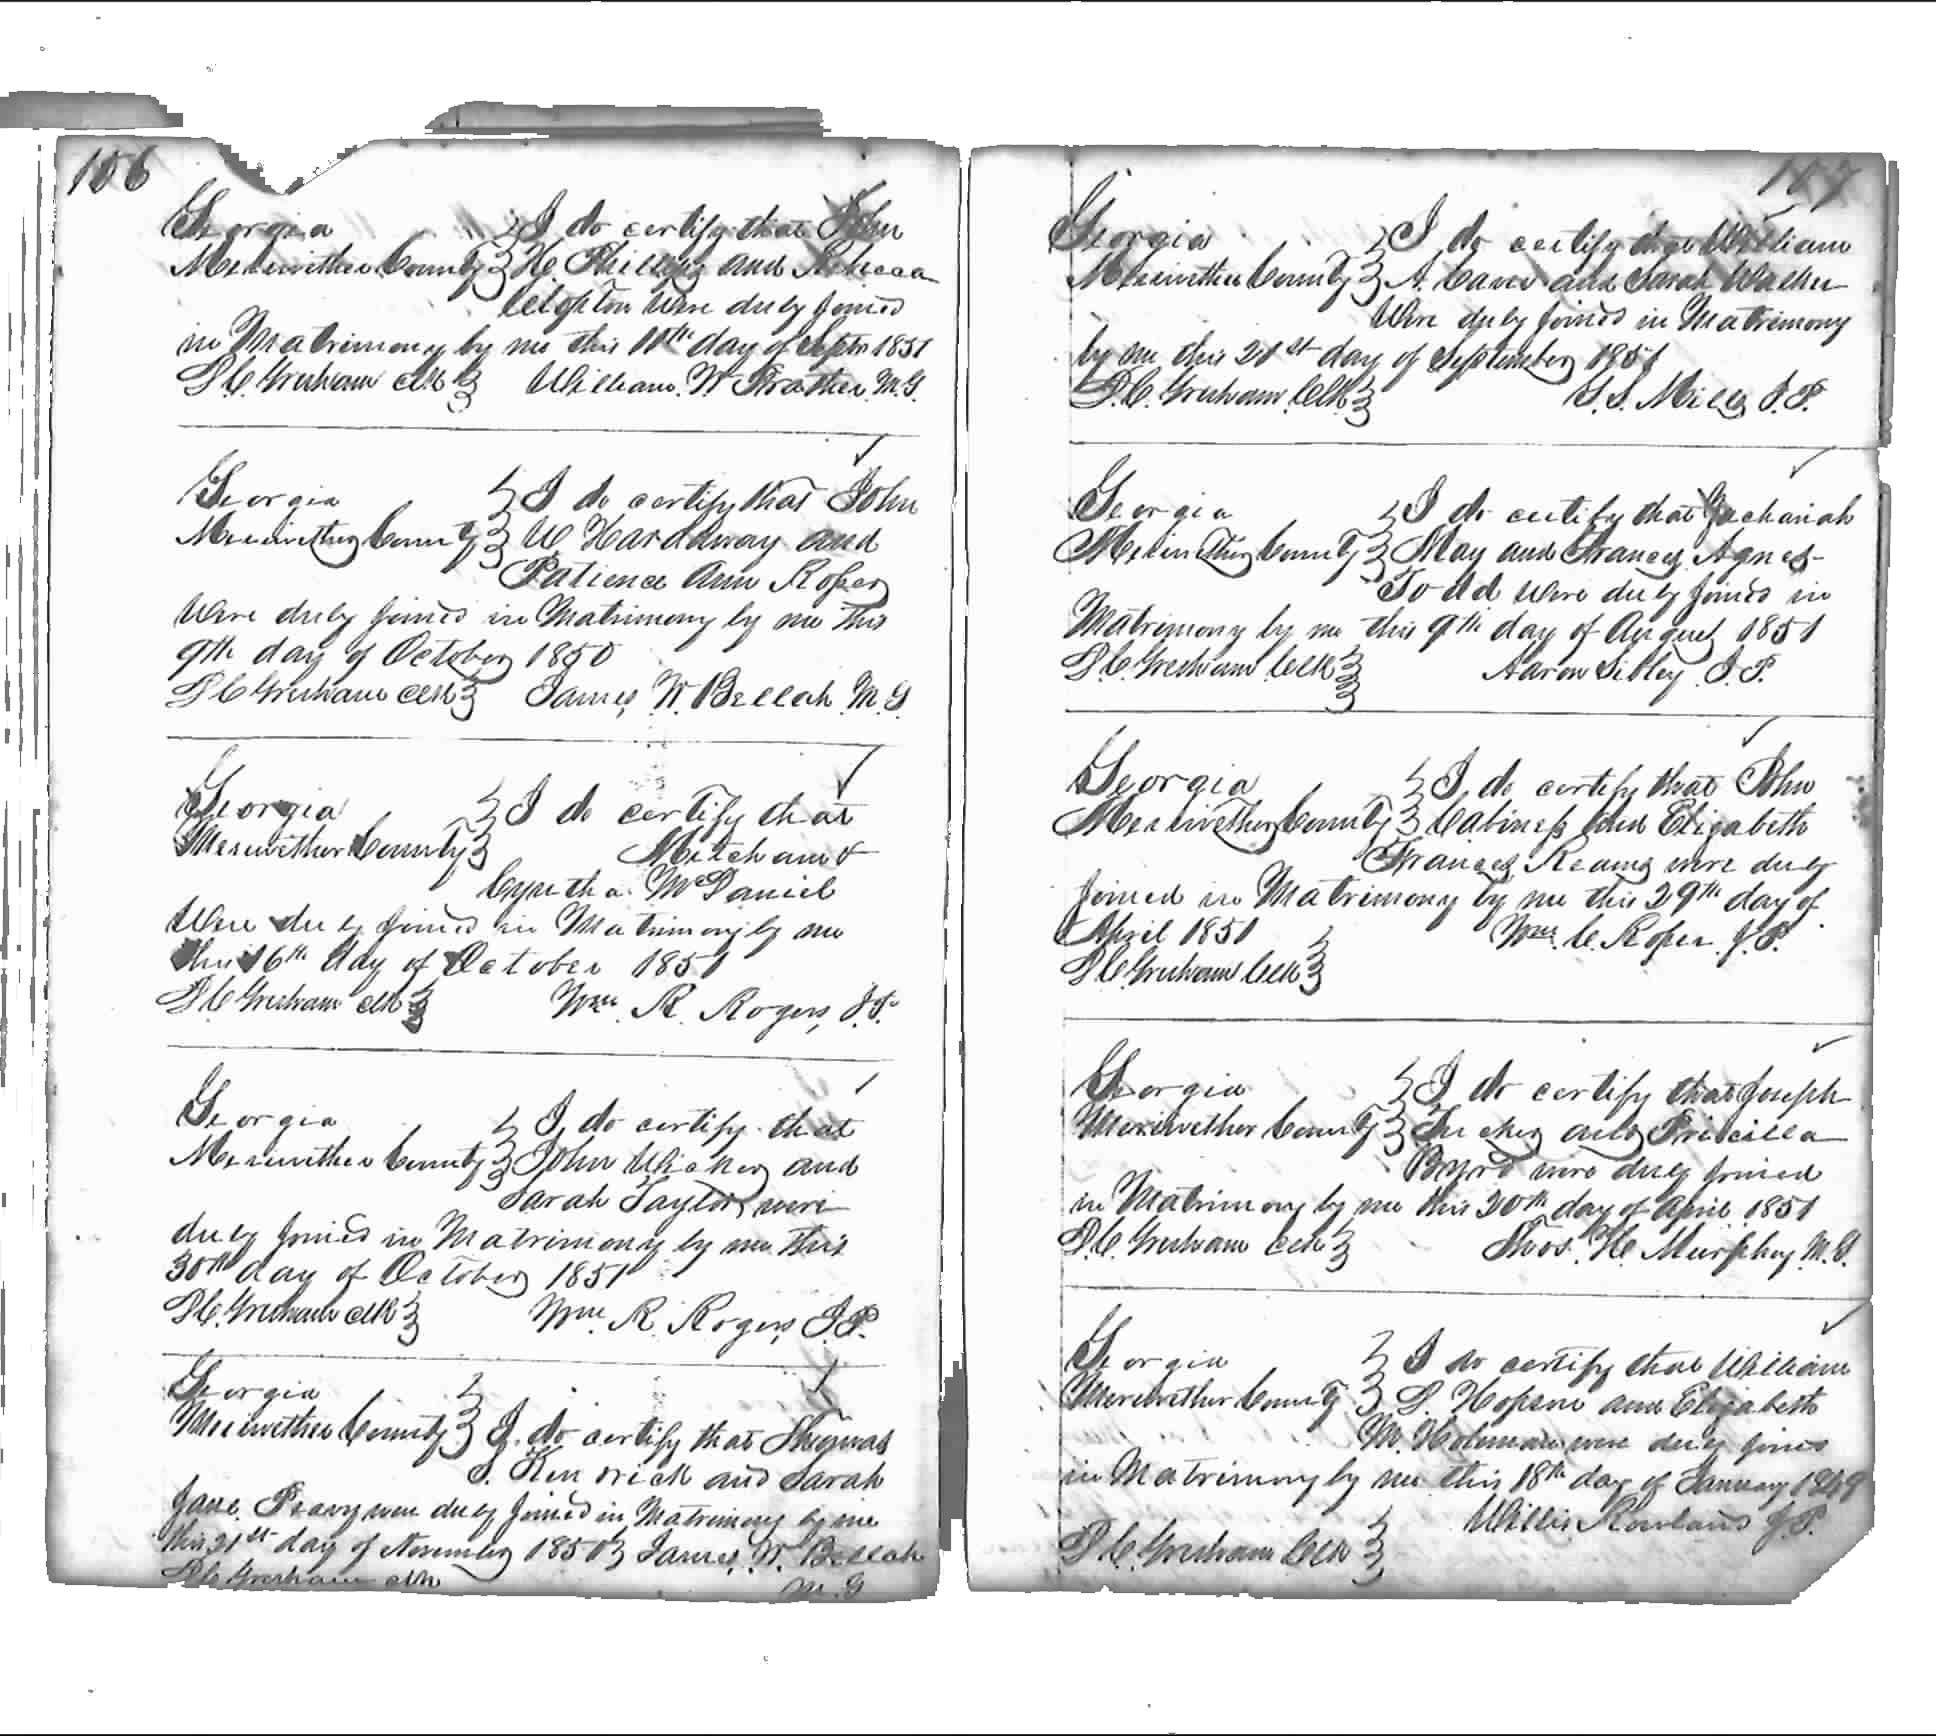 106
Georgia } I do certify that John
Meriwether County } H. Phillips and Rebecca
Clopton were duly joined
in Matrimony by me this 11th day of Septr 1851
D C Gresham clk } William W Strather M.G.
Georgia } I do certify that John
Meriwether County } W Hardaway and
Patience Ann Roper
were duly joined in Matrimony by me this
9th day of October 1850
D C Gresham Clk } James W. Bellah M.G
Georgia } I do certify that
Meriwether County } Mitcham &
Cyntha McDaniel
were duly joined in Matrimony by me
this 16th day of October 1851
D C Gresham clk } Wm. R. Rogers, J.P.
Georgia } I do certify that
Meriwether County } John and
Sarah Taylor were
duly joined in Matrimony by me this
30th day of October 1851
D C. Gresham clk } Wm. R. Rogers J.P.
Georgia }
Meriwether County } I do certify that Thomas
J. Kendrick and Sarah
Jane Peavy were duly joined in Matrimony by me
this 21st day of November 1850 } James W. Bellah
D C Gresham clk M.G
107
Georgia } I do certify that William
Meriwether County } A. Caver and Sarah Walker
Were duly joined in Matrimony
by me this 21st day of September 1851
D.C. Gresham Clk } S. S. Mills J.P.
Georgia } I do certify that Zachariah
Meriwether County } May and Frances Agnes
Todd were duly joined in
Matrimony by me this 9th day of August 1851
D.C. Gresham Clk } Aaron Sibley J.P.
Georgia } I do certify that John
Meriwether County } Cabiness and Elizabeth
Frances Reams were duly
joined in Matrimony by me this 29th day of
April 1851 Wm. C. Roper J.P.
D C Gresham Clk }
Georgia } I do certify that Joseph
Meriwether County } Tucker and Priscilla
Byrd were duly joined
in Matrimony by me this 20th day of April 1851
D.C. Gresham Clk } Thos. H. Murphey M.G.
Georgia } I do certify that William
Meriwether County } S. Hopson and Elizabeth
M. Holeman were duly joined
in Matrimony by me this 18th day of January 1849
Willis Rowland J.P.
D C. Gresham Clk }